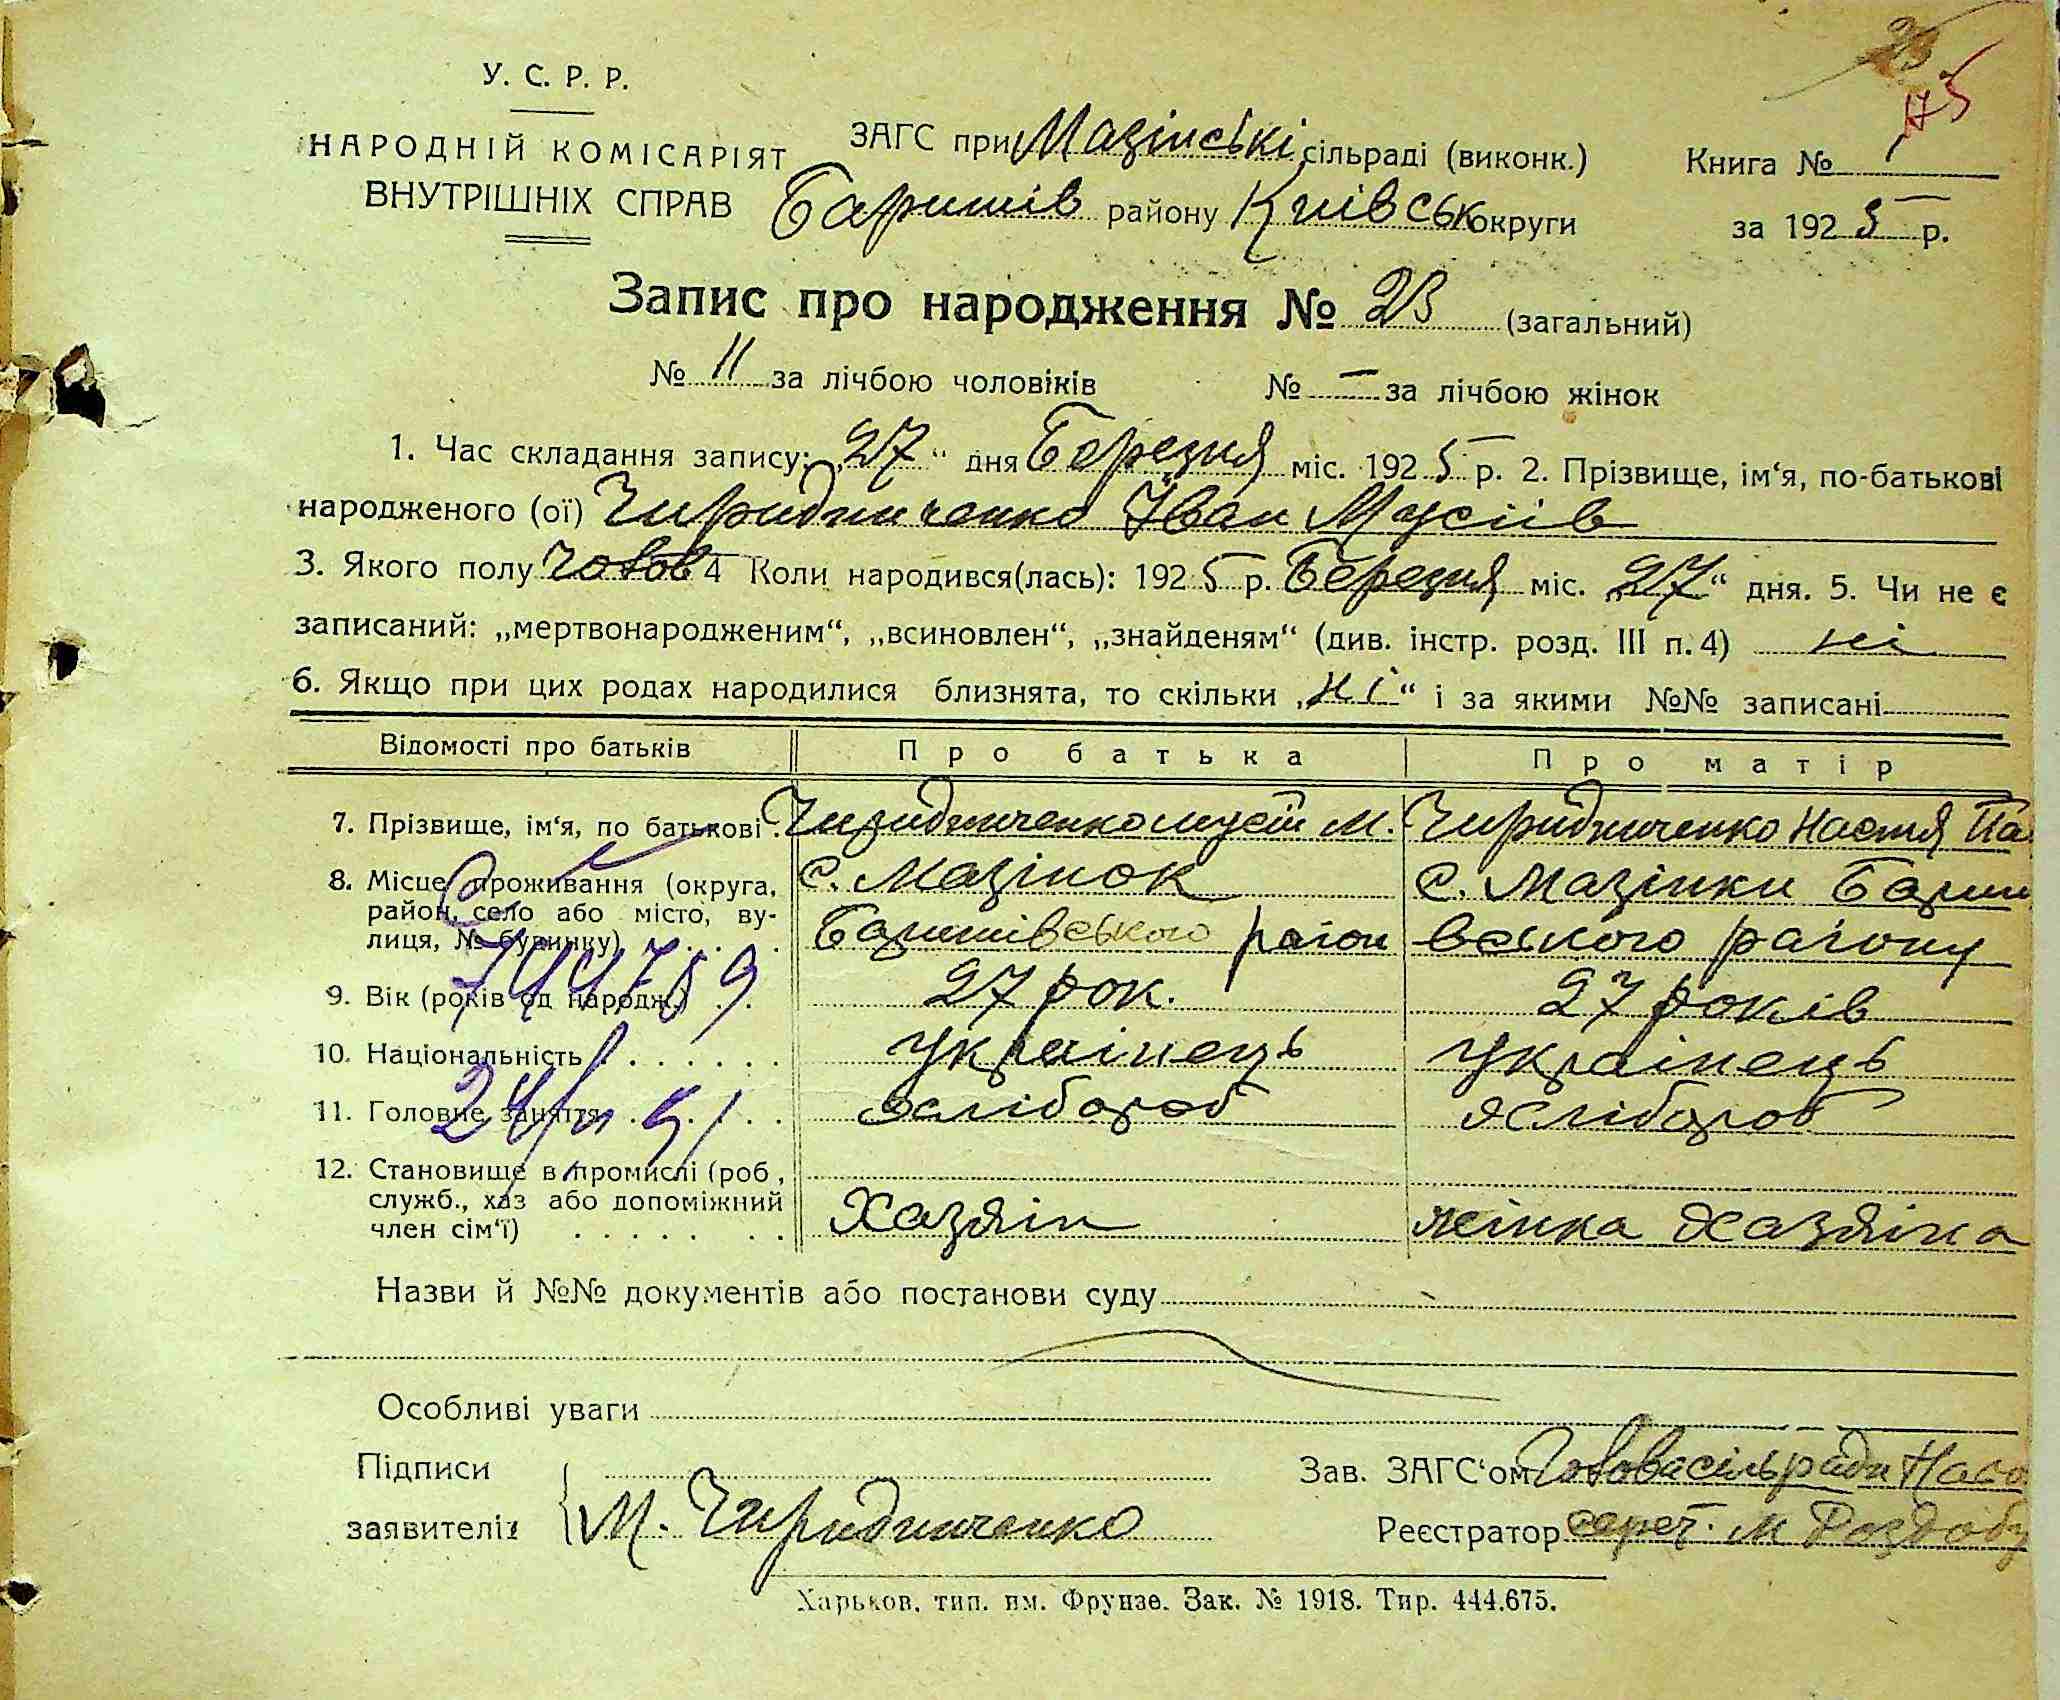 23
175
У. С. Р. Р.
НАРОДНІЙ КОМІСАРІЯТ
ВНУТРІШНІХ СПРАВ
ЗАГС при Мазінські сільраді (виконк.)
Баришів району Київськ округи
Книга № 1
за 1925 р.
Запис про народження № 23 (загальний)
№ 11 за лічбою чоловіків № — за лічбою жінок
1. Час складання запису: „27“ дня Березня міс. 1925 р. 2. Прізвище, ім‘я, по-батькові
народженого (ої) Чиридниченко Іван Мусіїв
3. Якого полу Чолов 4 Коли народився(лась): 1925 р. Березня міс. „27“ дня. 5. Чи не є
записаний: „мертвонародженим“, „всиновлен“, „знайденям“ (див. інстр. розд. III п. 4) ні
6. Якщо при цих родах народилися близнята, то скільки „ні“ і за якими №№ записані
Відомості про батьків Про батька Про матір
7. Прізвище, ім‘я, по батькові Чиридниченко Мусій М. Чиридниченко Настя Па
8. Місце проживання (округа, с. Мазінок с. Мазінки Бариш
район, село або місто, ву-
лиця, № будинку) Баришівського район вського району
9. Вік (років од народж.) 27 рок. 27 років
10. Національність Українець Українець
11. Головне заняття Хлібороб Хлібороб
12. Становище в промислі (роб,
служб., хаз або допоміжний Хазяїн жінка Хазяїна
член сім‘ї)
Назви й №№ документів або постанови суду
Особливі уваги
Підписи
заявителів М. Чиридниченко
Зав. ЗАГС‘ом Голова сільради
Реєстратор секрет. М Роздобу
Харьков, тип. им. Фрунзе. Зак. № 1918. Тир. 444.675.